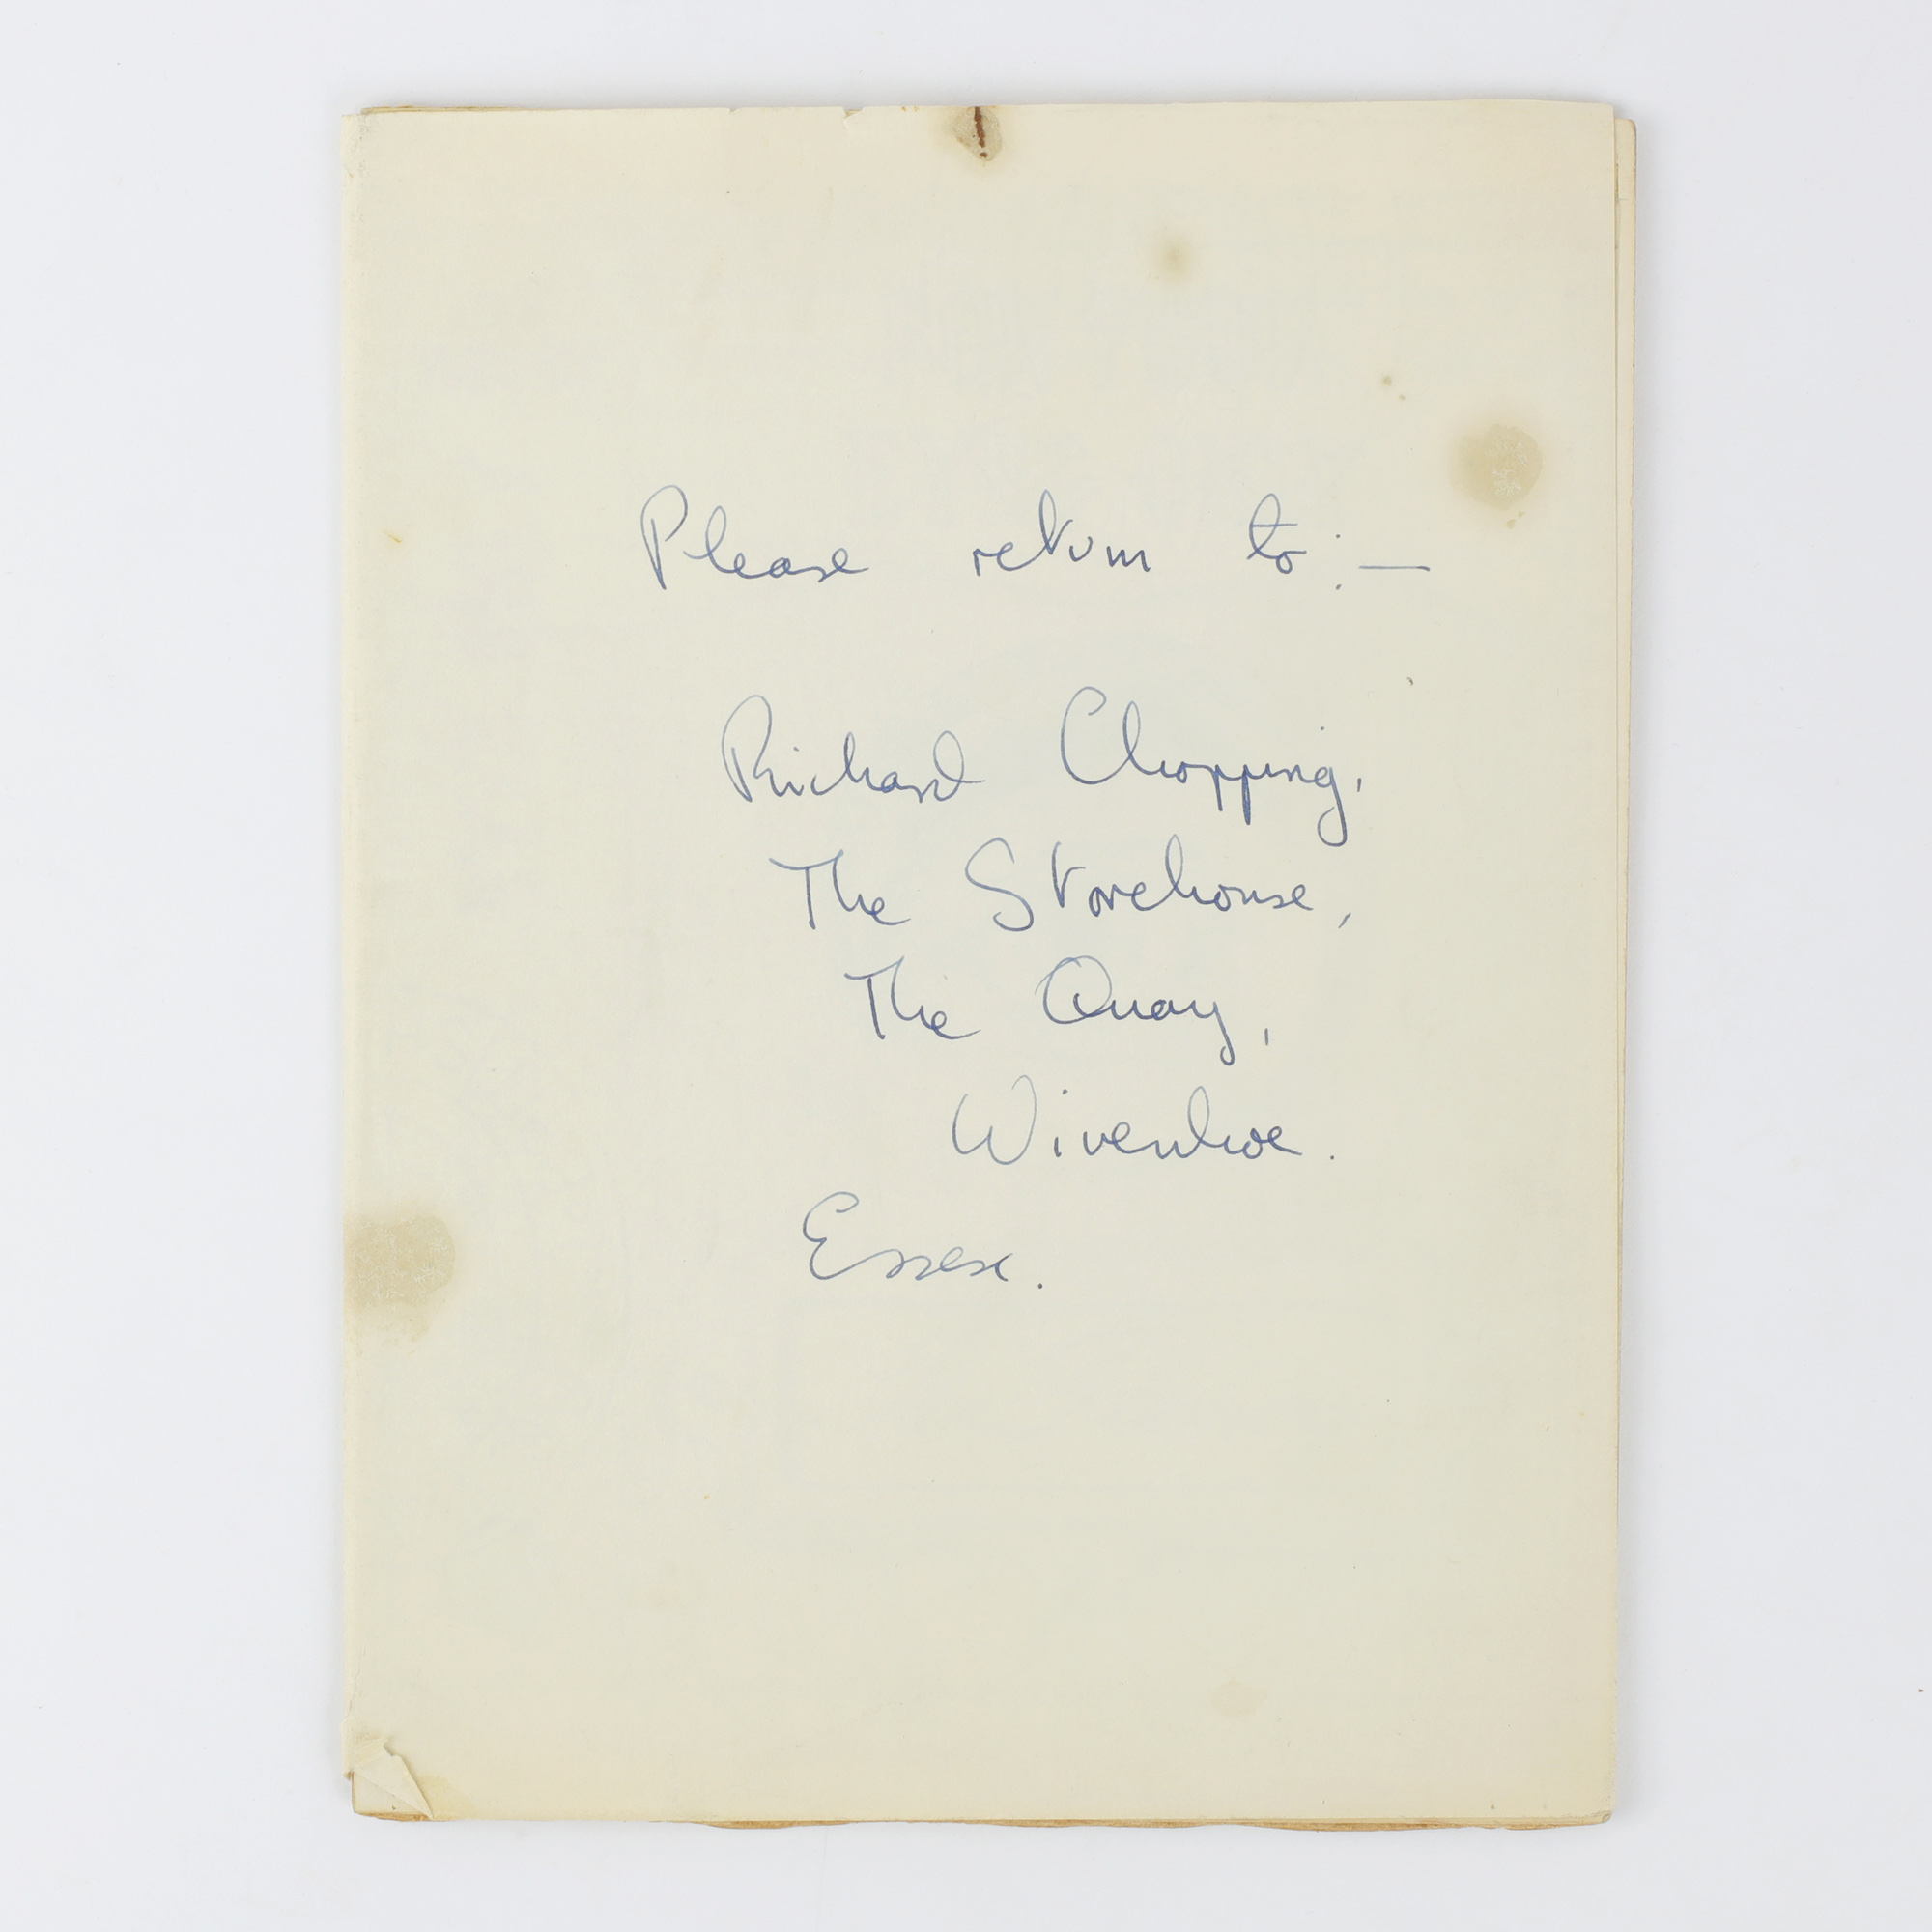 Please return to:—
Richard Chopping,
The Storehouse,
The Quay,
Wivenhoe.
Essex.